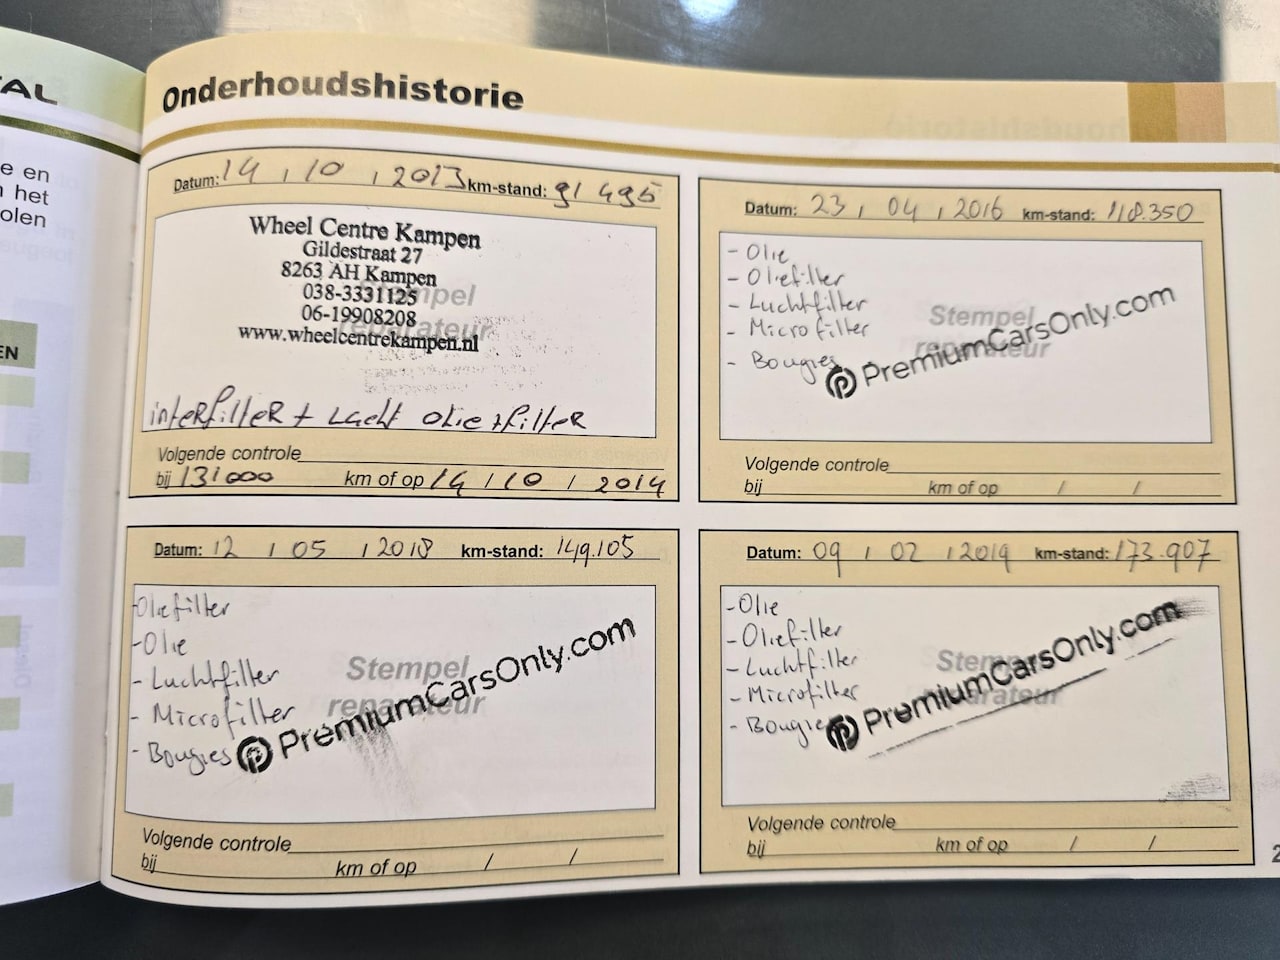 TAL
e en
n het
olen
EN
Onderhoudshistorie
Datum: 14 / 10 / 2013 km-stand: 91 495
Wheel Centre Kampen
Gildestraat 27
8263 AH Kampen
038-3331125
06-19908208
www.wheelcentrekampen.nl
Stempel
reparateur
interfilteR + Lucht olie + filteR
Volgende controle
bij 131000 km of op 14 / 10 / 2014
Datum: 23 / 04 / 2016 km-stand: 118.350
- Olie
- Oliefilter
- Luchtfilter
- Microfilter
- Bougies
Stempel
reparateur
PremiumCarsOnly.com
Volgende controle
bij km of op / /
Datum: 12 / 05 / 2018 km-stand: 149.105
-Oliefilter
-Olie
- Luchtfilter
- Microfilter
- Bougies
Stempel
reparateur
PremiumCarsOnly.com
Volgende controle
bij km of op / /
Datum: 09 / 02 / 2019 km-stand: 173.907
-Olie
-Oliefilter
-Luchtfilter
-Microfilter
- Bougies
Stempel
reparateur
PremiumCarsOnly.com
Volgende controle
bij km of op / /
2